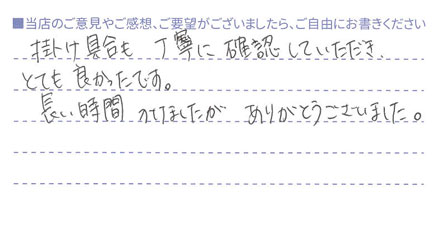 ■当店のご意見やご感想、ご要望がございましたら、ご自由にお書きください
掛け具合も 丁寧に 確認していただき、
とても 良かったです。
長い時間 ましたが ありがとうございました。